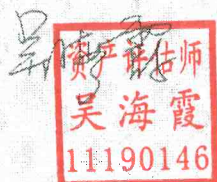 吴海霞
资产评估师
吴海霞
11190146